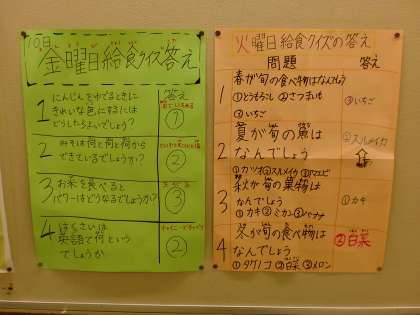 10月
金曜日給食クイズ答え
答え
1 にんじんをゆでるときに
きれいな色にするには
どうしたらよいでしょう?
①
2 みそは何と何と何から
できているでしょうか?
②
3 お茶を食べると
パワーはどうなるでしょうか?
③
4 はくさいは
英語で何という
でしょうか
②
火曜日給食クイズの答え
問題 答え
1 春が旬の食べ物はなんでしょう
①とうもろこし ②さつまいも
③いちご
③いちご
2 夏が旬の魚は
なんでしょう
①カツオ ②スルメイカ ③アマエビ
②スルメイカ
3 秋が旬の果物は
なんでしょう
①カキ ②ミカン ③バナナ
①カキ
4 冬が旬の食べ物は
なんでしょう
①タケノコ ②白菜 ③メロン
②白菜